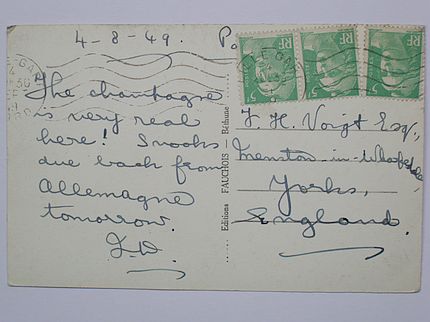 4-8-49.
The champagne
is very real
here! Snooks
due back from
Allemagne
tomorrow.
J.W.
Editions FAUCHOIS Béthune
F. H. Voigt Esq.,
Menston-in-Wharfedale,
Yorks,
England.
RF
RF
RF